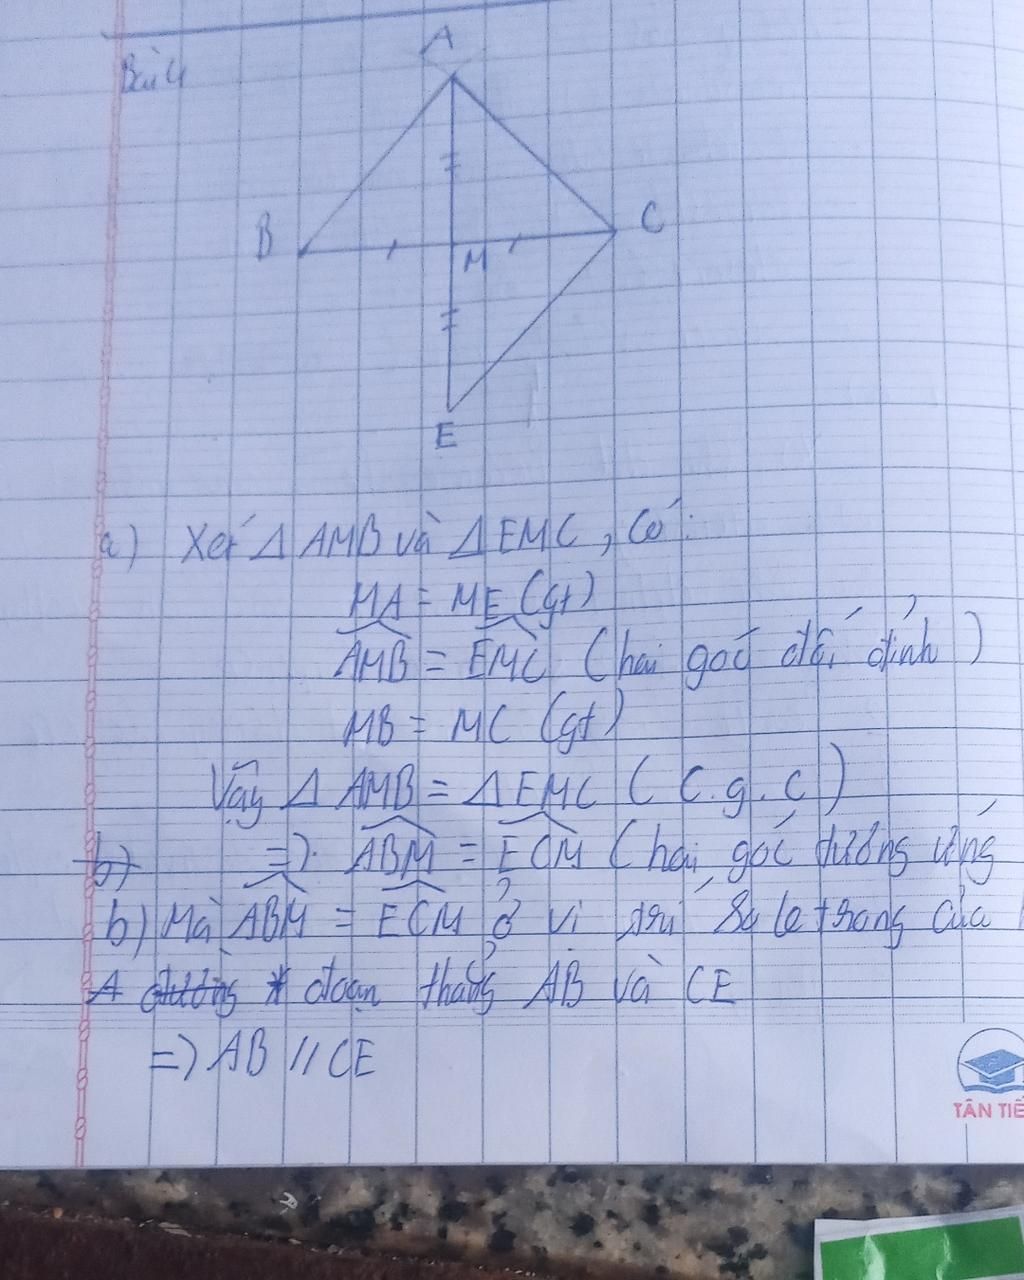 Bài 4
A
B
C
M
E
a) Xét Δ AMB và Δ EMC, có:
MA = ME (gt)
AMB = EMC (hai góc đối đỉnh)
MB = MC (gt)
Vậy Δ AMB = Δ EMC (C.g.C)
b) => ABM = ECM (hai góc tương ứng
b) Mà ABM = ECM ở vị trí so le trong của
A đường đoạn thẳng AB và CE
=> AB // CE
TÂN TIẾ